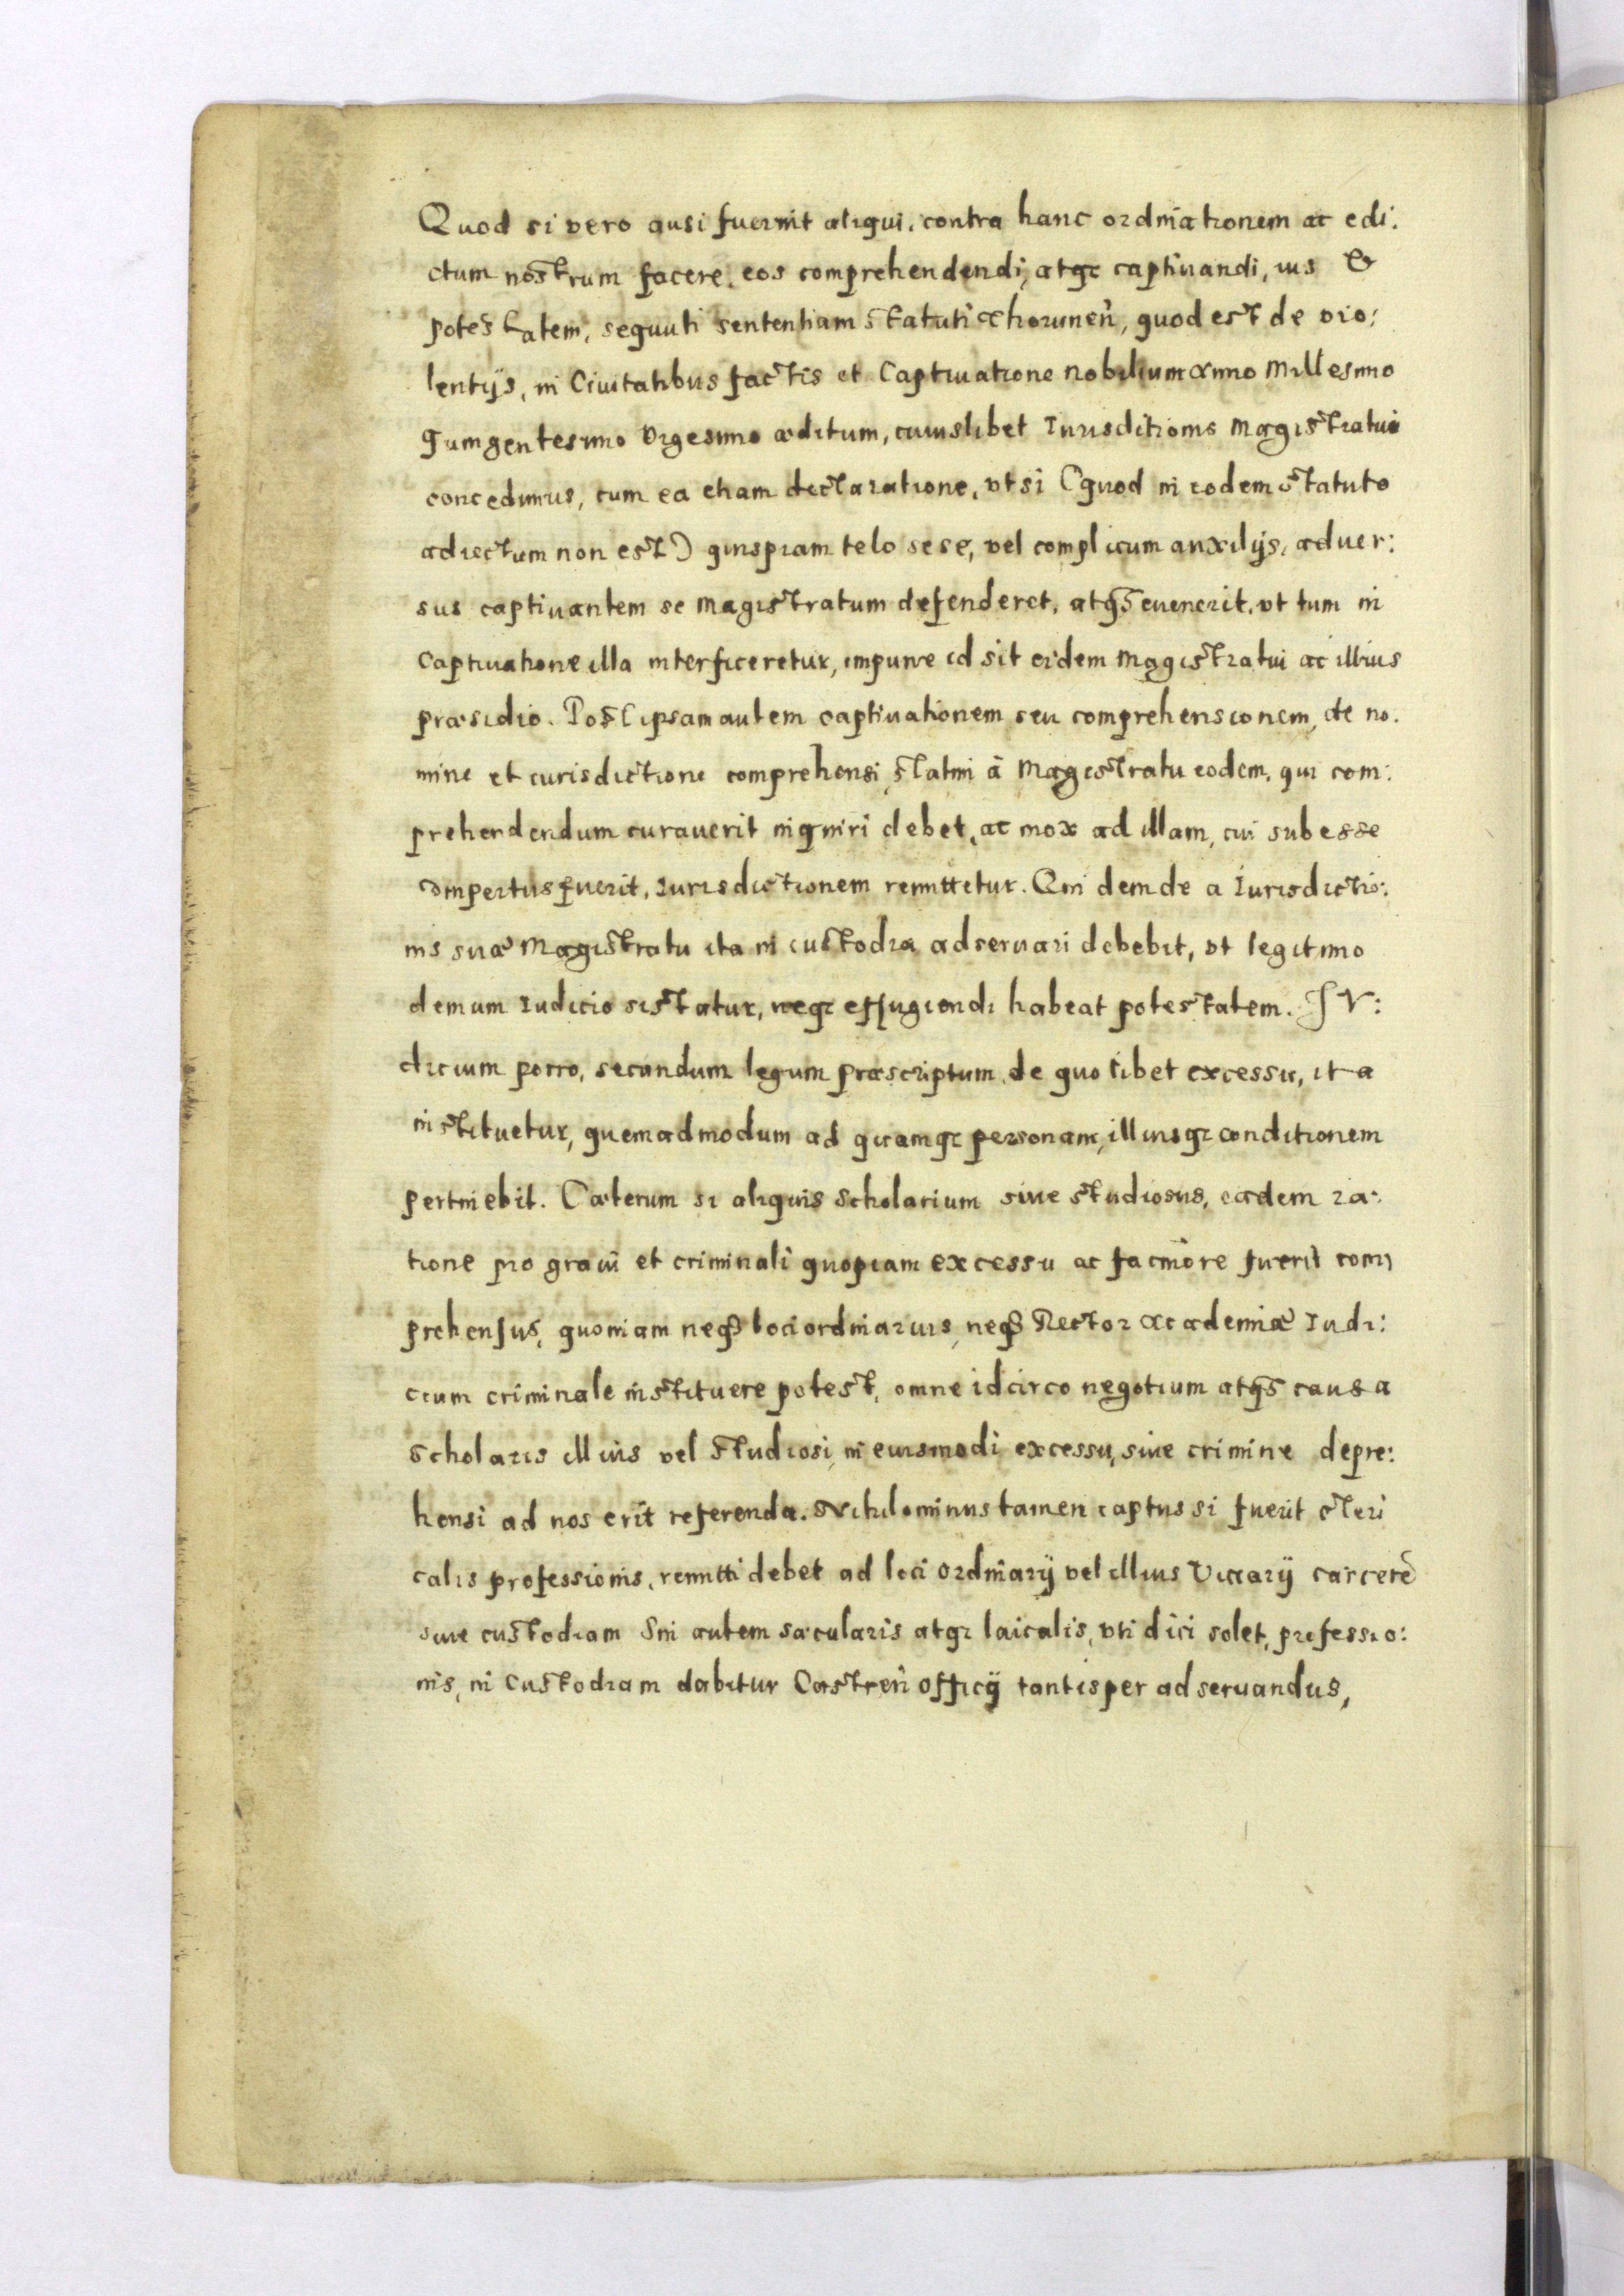 Quod si vero ausi fuerint aliqui, contra hanc ordinationem ac edi:
ctum nostrum facere, eos comprehendendi, atqꝫ captiuandi, ius &
potestatem, sequuti sententiam statuti Thorunen̄, quod est de vio:
lentijs, in Ciuitatibus factis et Captiuatione nobilium Anno Millesimo
Quingentesimo Vigesimo æditum, cuiuslibet Iurisditionis Magistratui
concedimus, cum ea etiam declaratione, vt si (quod in eodem statuto
adiectum non est) quispiam telo sese, vel complicum auxilijs, aduer:
sus captiuantem se Magistratum defenderet, atqꝫ euenerit, vt tum in
Captiuatione illa interficeretur, impune id sit eidem Magistratui ac illius
præsidio. Post ipsam autem captiuationem seu comprehensionem, de no:
mine et iurisdictione comprehensi, statim à Magistratu eodem, qui com:
prehendendum curauerit inquiri debet, ac mox ad illam, cui subesse
compertus fuerit, Iurisdictionem remittetur. Qui deinde a Iurisdictio:
nis suæ Magistratu ita in custodia adseruari debebit, vt legitimo
demum Iudicio sistatur, neqꝫ effugiendi habeat potestatem. IV:
dicium porro, secundum legum præscriptum, de quolibet excessu, ita
instituetur, quemadmodum ad quamqꝫ personam, illiusqꝫ conditionem
pertinebit. Cæterum si aliquis Scholarium siue studiosus, eadem ra:
tione pro graui et criminali quopiam excessu ac facinore fuerit com:
prehensus, quoniam neqꝫ loci ordinarius, neqꝫ Rector Academiæ Iudi:
cium criminale instituere potest, omne idcirco negotium atqꝫ causa
Scholaris illius vel studiosi, in eiusmodi excessu, siue crimine depre:
hensi ad nos erit referenda. Nihilominus tamen captus si fuerit cleri
calis professionis, remitti debet ad loci ordinarij vel illius Vicarij carcerē
siue custodiam Sin autem sæcularis atqꝫ laicalis, vti dici solet, professio:
nis, in Custodiam dabitur Castren̄ officij tantisper adseruandus,